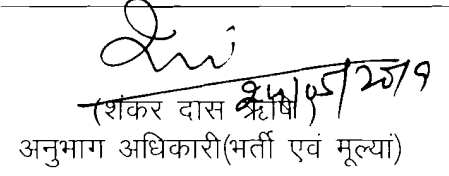 24/05/2019
(शंकर दास ऋषि)
अनुभाग अधिकारी(भर्ती एवं मूल्यां)